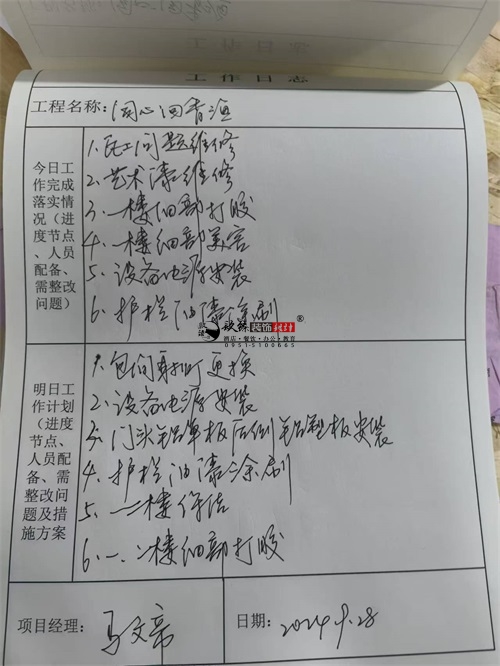 工作日志
工程名称：同心回香酒
今日工作完成落实情况（进度节点、人员配备、需整改问题）
1、瓦工问题维修
2、艺术漆维修
3、一楼细部打胶
4、一楼细部美容
5、设备电源安装
6、护栏油漆涂刷
装饰设计®
酒店·餐饮·办公·教育
0951-5100665
明日工作计划（进度节点、人员配备、需整改问题及措施方案）
1、包间射灯更换
2、设备电源安装
3、门头铝单板后侧铝塑板安装
4、护栏油漆涂刷
5、一二楼保洁
6、一、二楼细部打胶
项目经理：
日期：2024 9.28